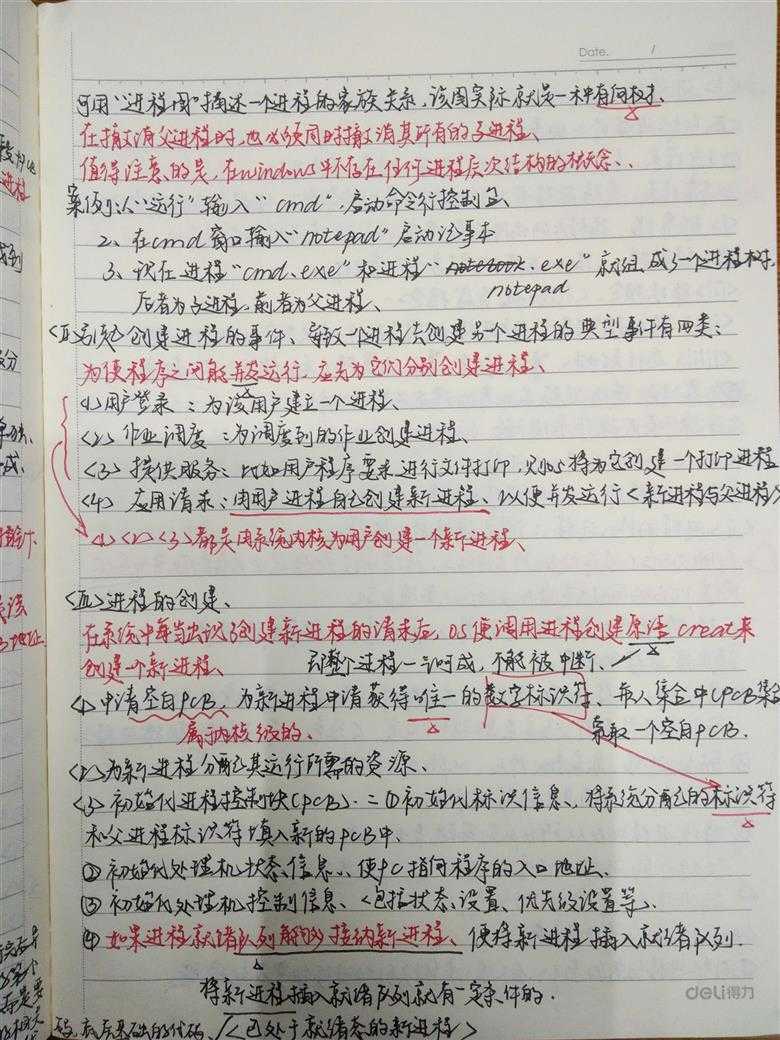 Date. /
可用“进程图”描述一个进程的家族关系,该图实际就是一种有向树.
在撤消父进程时,也必须同时撤消其所有的子进程、
值得注意的是,在windows中不存在任何进程层次结构的概念、、
案例以“运行”输入“cmd”,启动命令行控制台
2、在cmd窗口输入“notepad”启动记事本
3、现在进程“cmd.exe”和进程“notebook.exe”就组成了一个进程树,
notepad
后者为子进程,前者为父进程、
创建进程的事件、导致一个进程去创建另一个进程的典型事件有四类:
为使程序之间能并发运行,应先为它们分别创建进程、
<1>用户登录:为该用户建立一个进程、
<2>作业调度:为调度到的作业创建进程、
<3>提供服务:比如用户程序要求进行文件打印,则os将为它创建一个打印进程
<4>应用请求:由用户进程自己创建新进程、以便并发运行<新进程与父进程>
<1><2><3>都是由系统内核为用户创建一个新进程、
<三>进程的创建、
在系统中每当出现了创建新进程的请求后,OS便调用进程创建原语creat来
创建一个新进程、 即整个进程一气呵成,不能被中断、
<1>申请空白PCB,为新进程申请获得唯一的数字标识符、并从集合中(PCB集合
属于内核级的、 索取一个空白PCB.
<2>为新进程分配其运行所需的资源、
<3>初始化进程控制块(PCB).=①初始化标识信息、将系统分配的标识符
和父进程标识符填入新的PCB中.
②初始化处理机状态信息、、使PC指向程序的入口地址.
③初始化处理机控制信息、<包括状态、设置、优先级设置等>.
④如果进程就绪队列能够接纳新进程、便将新进程插入就绪队列.
将新进程插入就绪队列就有一定条件的.
deli得力
<已处于就绪态的新进程>